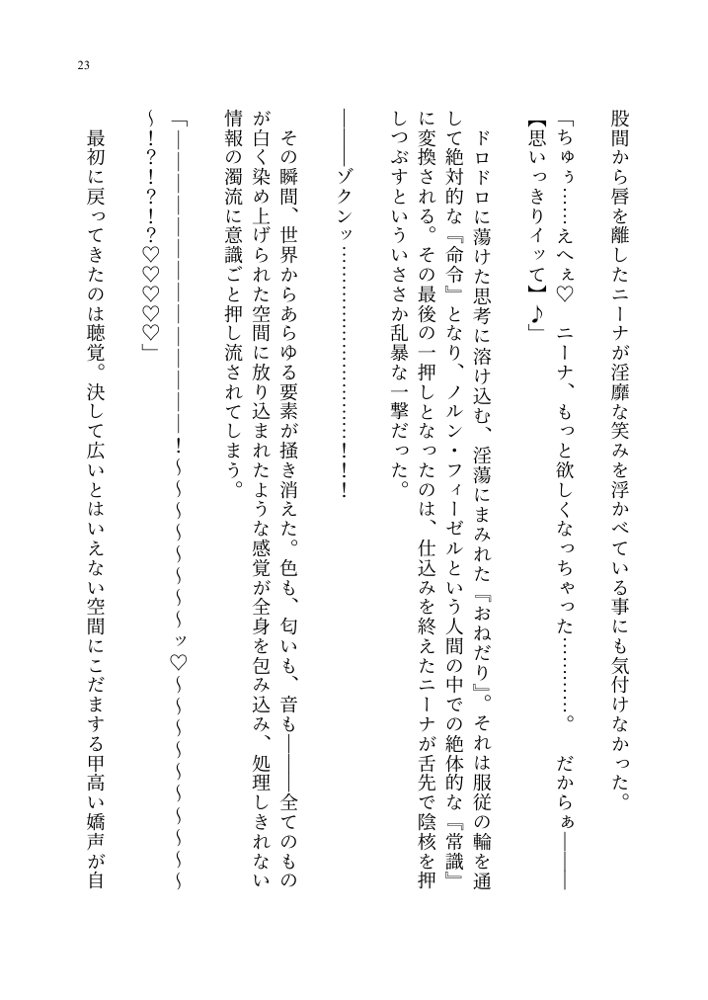 23
股間から唇を離したニーナが淫靡な笑みを浮かべている事にも気付けなかった。
「ちゅぅ……えへぇ♡　ニーナ、もっと欲しくなっちゃった…………。　だからぁ―――
【思いっきりイッて】♪」
ドロドロに蕩けた思考に溶け込む、淫蕩にまみれた『おねだり』。それは服従の輪を通
して絶対的な『命令』となり、ノルン・フィーゼルという人間の中での絶体的な『常識』
に変換される。その最後の一押しとなったのは、仕込みを終えたニーナが舌先で陰核を押
しつぶすといういささか乱暴な一撃だった。
―――ゾクンッ……………………………！！！
その瞬間、世界からあらゆる要素が掻き消えた。色も、匂いも、音も―――全てのもの
が白く染め上げられた空間に放り込まれたような感覚が全身を包み込み、処理しきれない
情報の濁流に意識ごと押し流されてしまう。
「―――――――――――――――！～～～～～～～～ッ♡～～～～～～～～～～
～！？！？！？♡♡♡♡♡」
最初に戻ってきたのは聴覚。決して広いとはいえない空間にこだまする甲高い嬌声が自